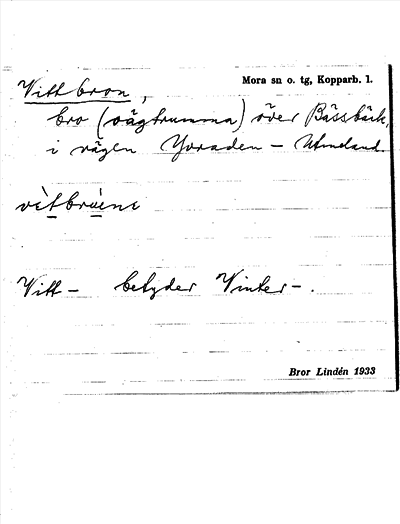 Mora sn o. tg, Kopparb. l.
Vittbron,
bro (vägtrumma) över Bässbäck,
i vägen Yvraden – Utmeland.
vìtbrùenɩ
Vitt– betyder Vinter–.
Bror Lindén 1933